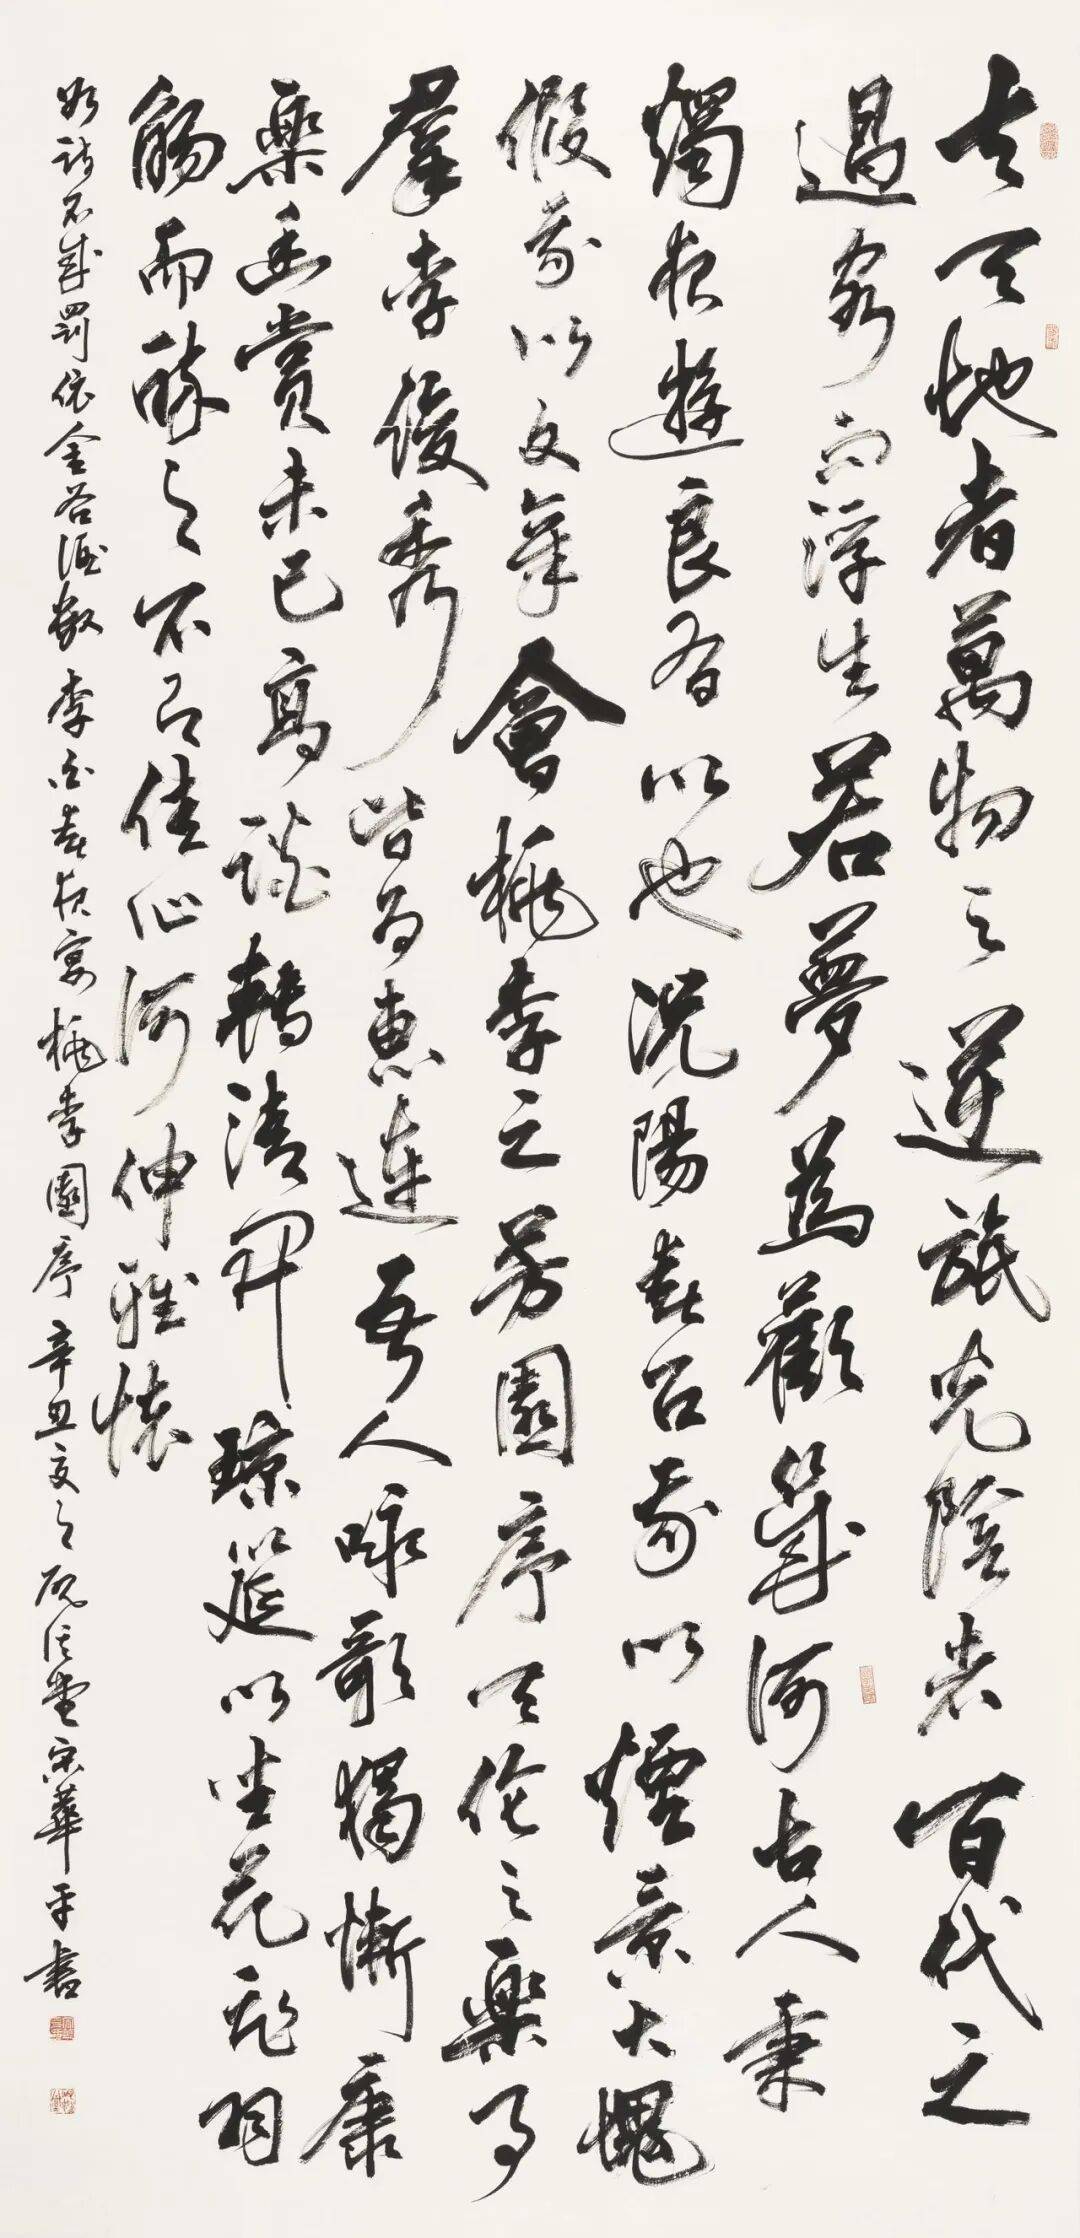 夫天地者萬物之逆旅光陰者百代之
過客而浮生若夢為歡幾何古人秉
燭夜遊良有以也況陽春召我以煙景大塊
假我以文章會桃李之芳園序天倫之樂事
羣季俊秀皆為惠連吾人咏歌獨慚康
樂幽賞未已高談轉清開瓊筵以坐花飛羽
觴而醉月不有佳作何伸雅懷
如詩不成罰依金谷酒數 李白春夜宴桃李園序 辛丑夏月 堂宋華平書